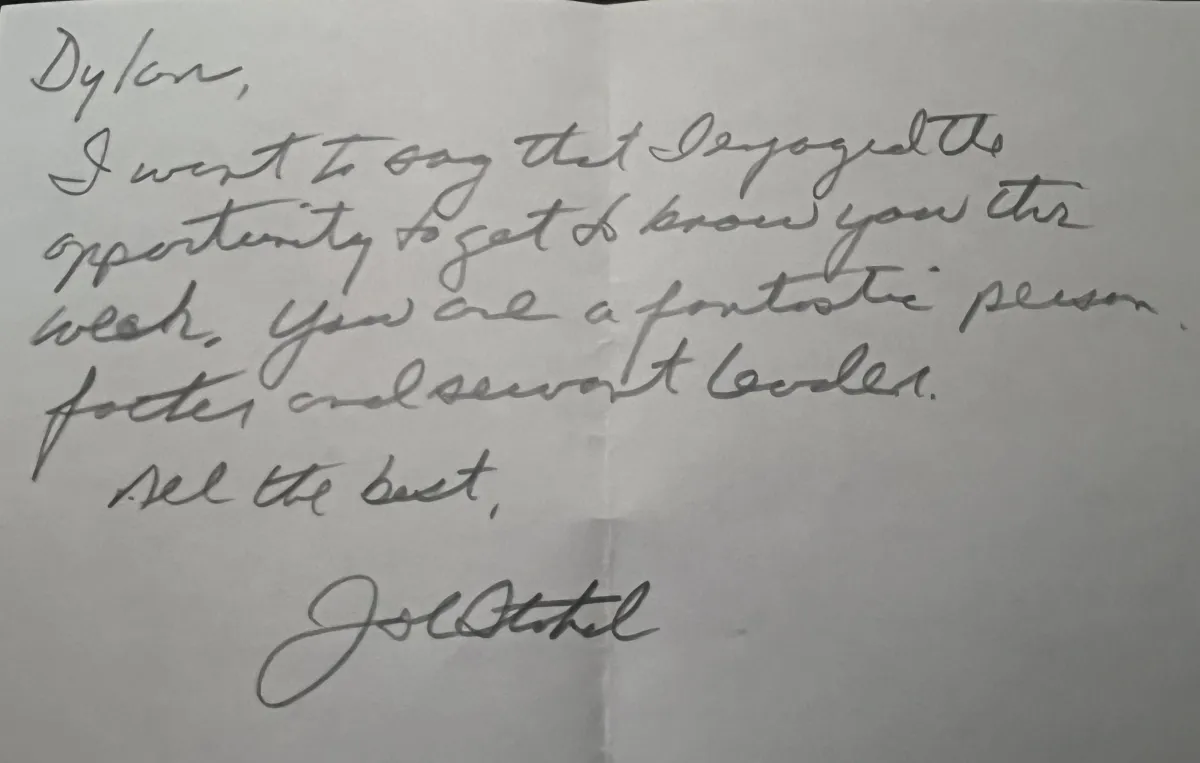 Dylan,
I want to say that I enjoyed the
opportunity to get to know you this
week. You are a fantastic person,
and servant leader.
All the best,